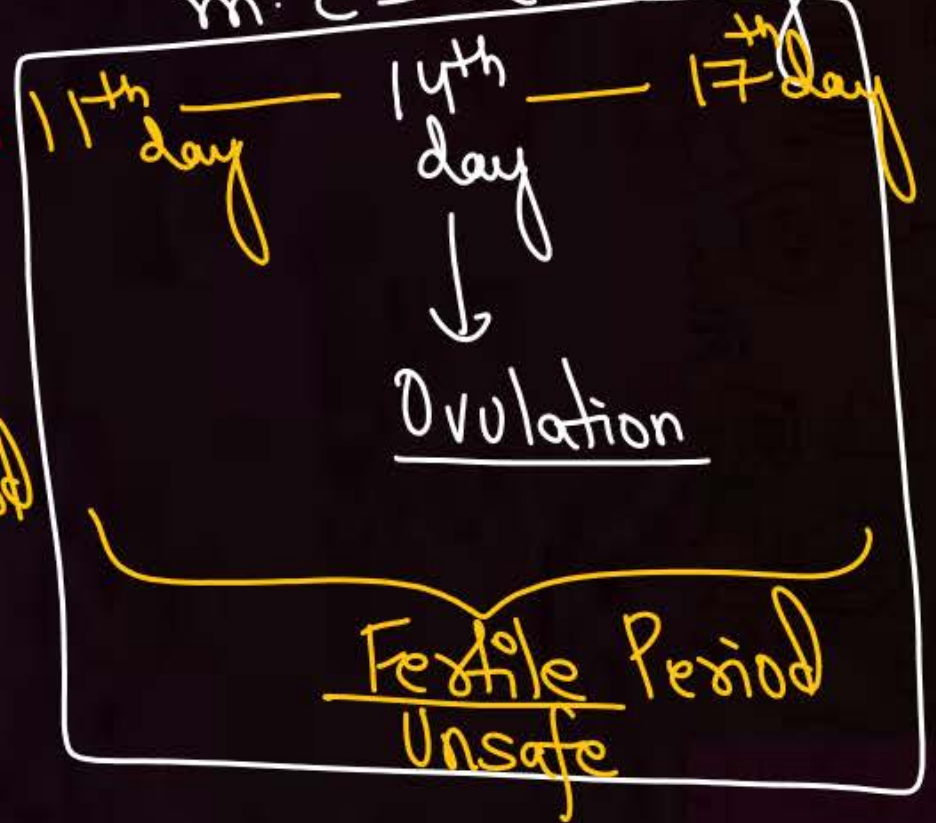 m.c
11th day — 14th day — 17th day
↓
Ovulation
Fertile Period
Unsafe